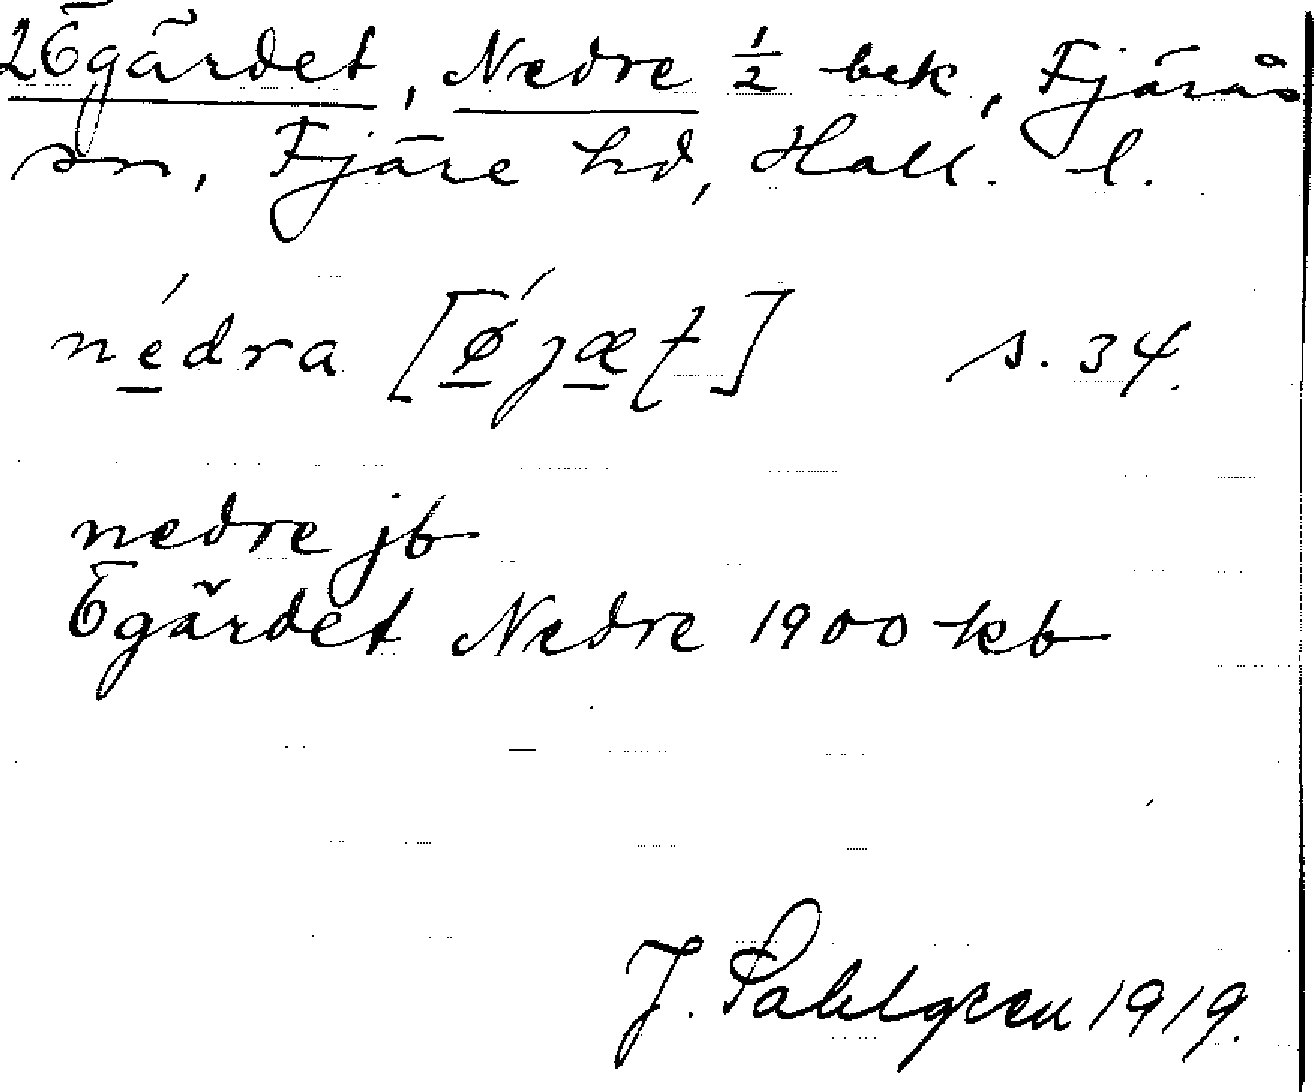 2 Ögärdet, Nedre 1/2 bek, Fjärås
sn, Fjäre hd, Hall. l.
nédra [ǿjæt] s. 34.
nedre jb
Ögärdet Nedre 1900 kb
J. Sahlgren 1919.